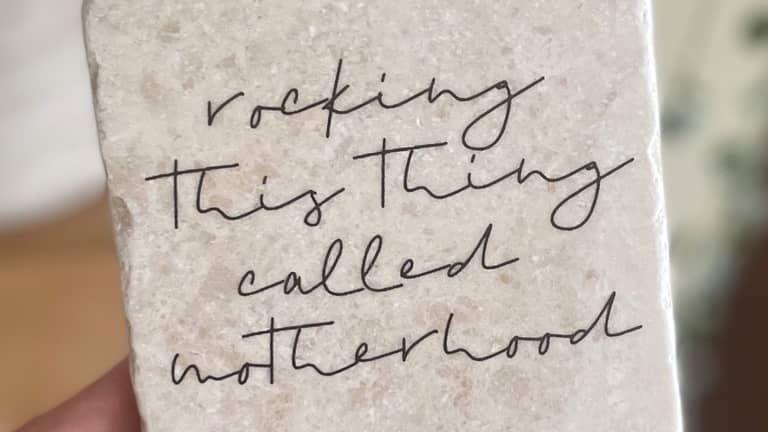 rocking
this thing
called
motherhood